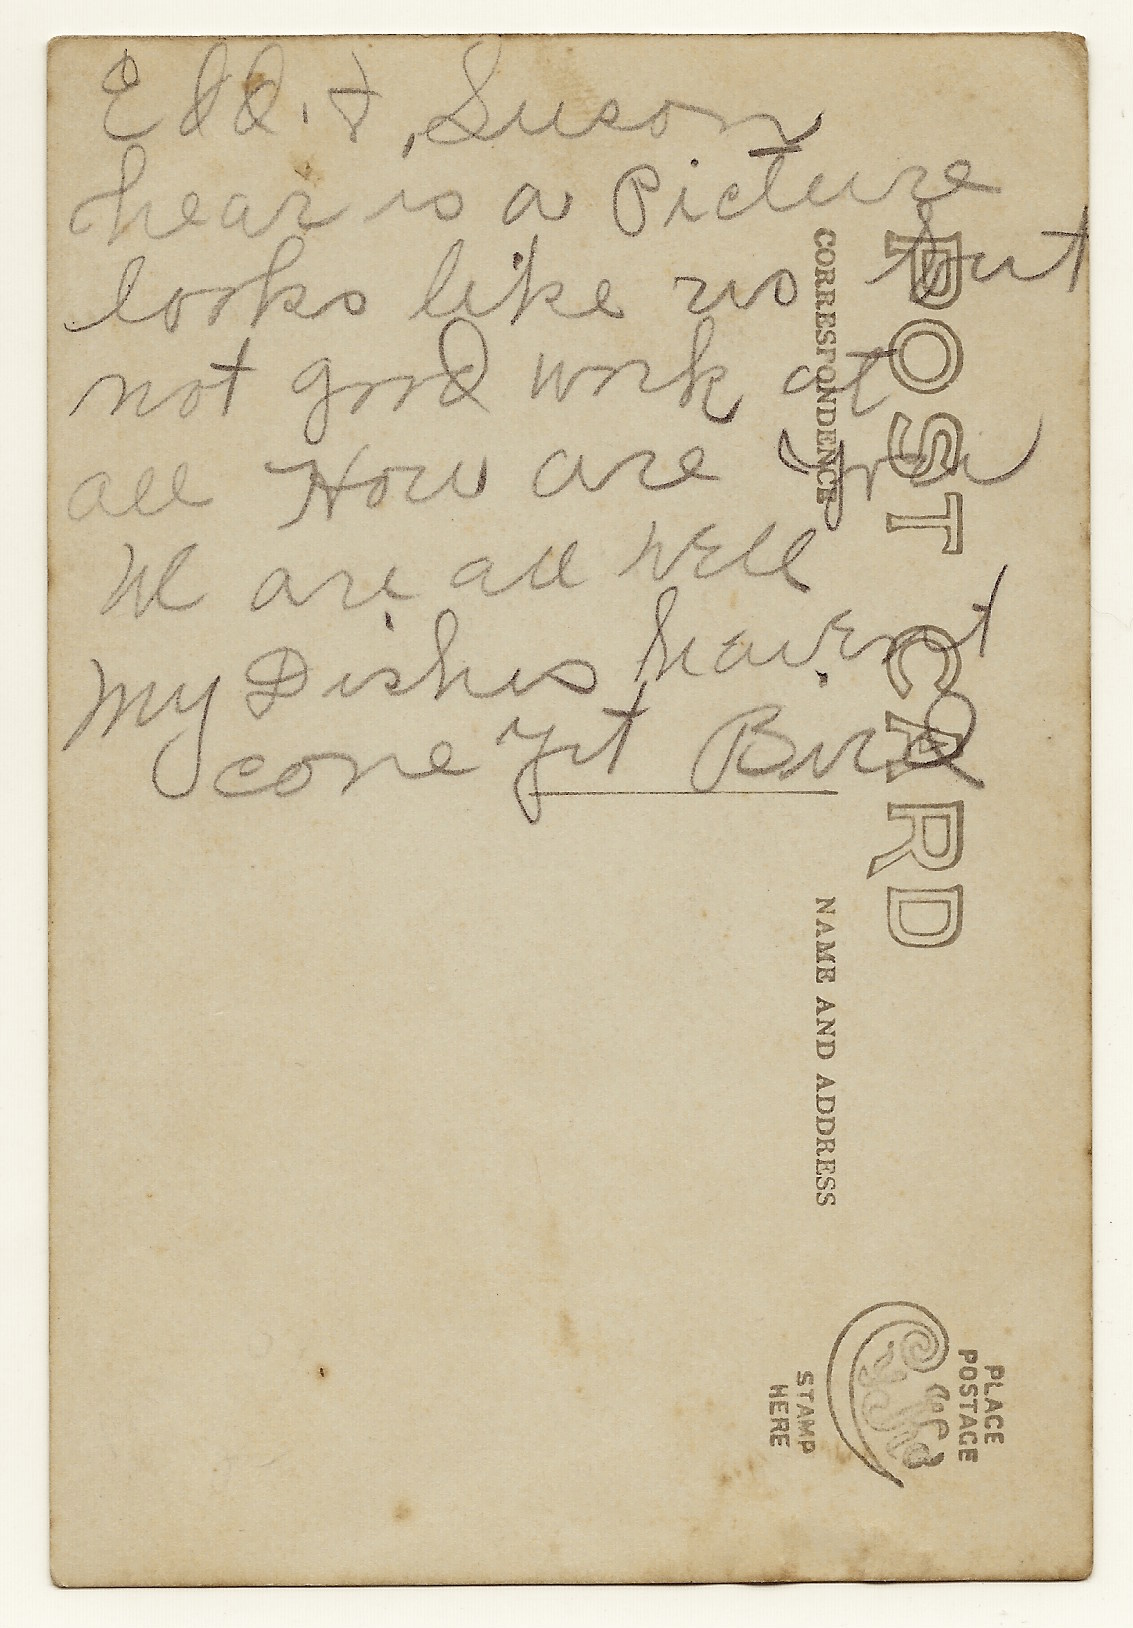 Edd. &, Suson
hear is a Picture
looks like us but
not good work at
all How are you
We are all well
My Dishes havent
come yet
POST CARD
CORRESPONDENCE
NAME AND ADDRESS
PLACE
POSTAGE
STAMP
HERE